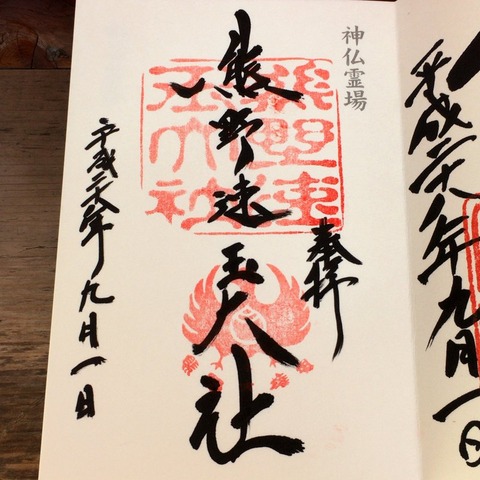 平成年九月一日
神仏霊場
奉拝
熊野速玉大社
熊野速
玉大社
平成年九月一日